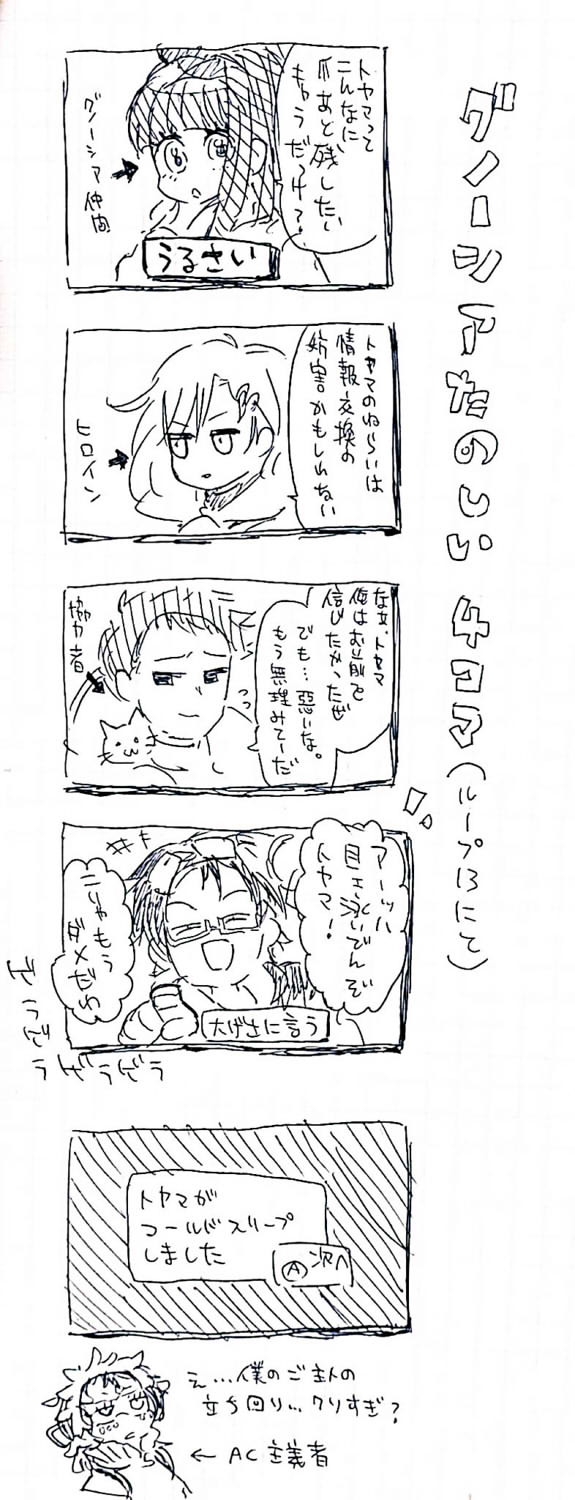 グノーシアたのしい 4コマ(ループ13にて)
トヤマって
こんなに
爪あと残したい
もようだっけ?
グノーシア仲間
うるさい
トヤマのねらいは
情報交換の
妨害かもしれない
ヒロイン
なぁ、トヤマ
俺はお前を
信じたかったぜ
でも…悪いな。
もう無理みてーだ
協力者
アーッハ
目ェ泳いでんぞ
トヤマ!
こりゃもう
ダメだわ
大げさに言う
トヤマが
コールドスリープ
しました
Ⓐ次へ
え…僕のご主人の
立ち回り…クソすぎ?
← AC主義者